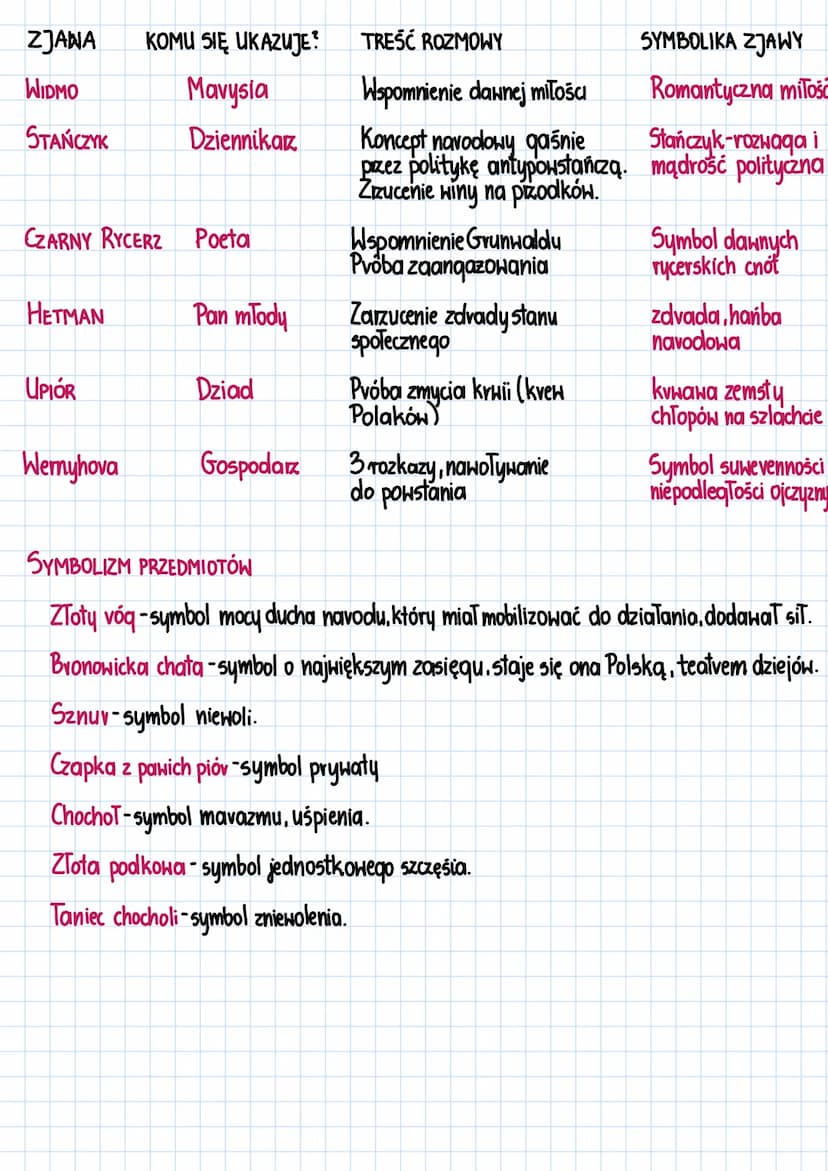 ZJAWA KOMU SIĘ UKAZUJE? TREŚĆ ROZMOWY SYMBOLIKA ZJAWY
WIDMO Marysia Wspomnienie dawnej miłości Romantyczna miłość
STAŃCZYK Dziennikarz Koncept narodowy gaśnie Stańczyk-rozwaga i
przez politykę antypowstańczą. mądrość polityczna
Zrzucenie winy na przodków.
CZARNY RYCERZ Poeta Wspomnienie Grunwaldu Symbol dawnych
Próba zaangazowania rycerskich cnót
HETMAN Pan młody Zarzucenie zdrady stanu zdrada, hańba
społecznego narodowa
UPIÓR Dziad Próba zmycia krwii (krew krwawa zemsty
Polaków) chłopów na szlachcie
Wernyhora Gospodarz 3 rozkazy, nawoływanie Symbol suwerenności
do powstania niepodległości ojczyzny
SYMBOLIZM PRZEDMIOTÓW
Złoty róg - symbol mocy ducha narodu, który miał mobilizować do działania, dodawał sił.
Bronowicka chata - symbol o największym zasięgu. staje się ona Polską, teatrem dziejów.
Sznur - symbol niewoli.
Czapka z pawich piór - symbol prywaty
Chochoł - symbol marazmu, uśpienia.
Złota podkowa - symbol jednostkowego szczęśia.
Taniec chocholi - symbol zniewolenia.